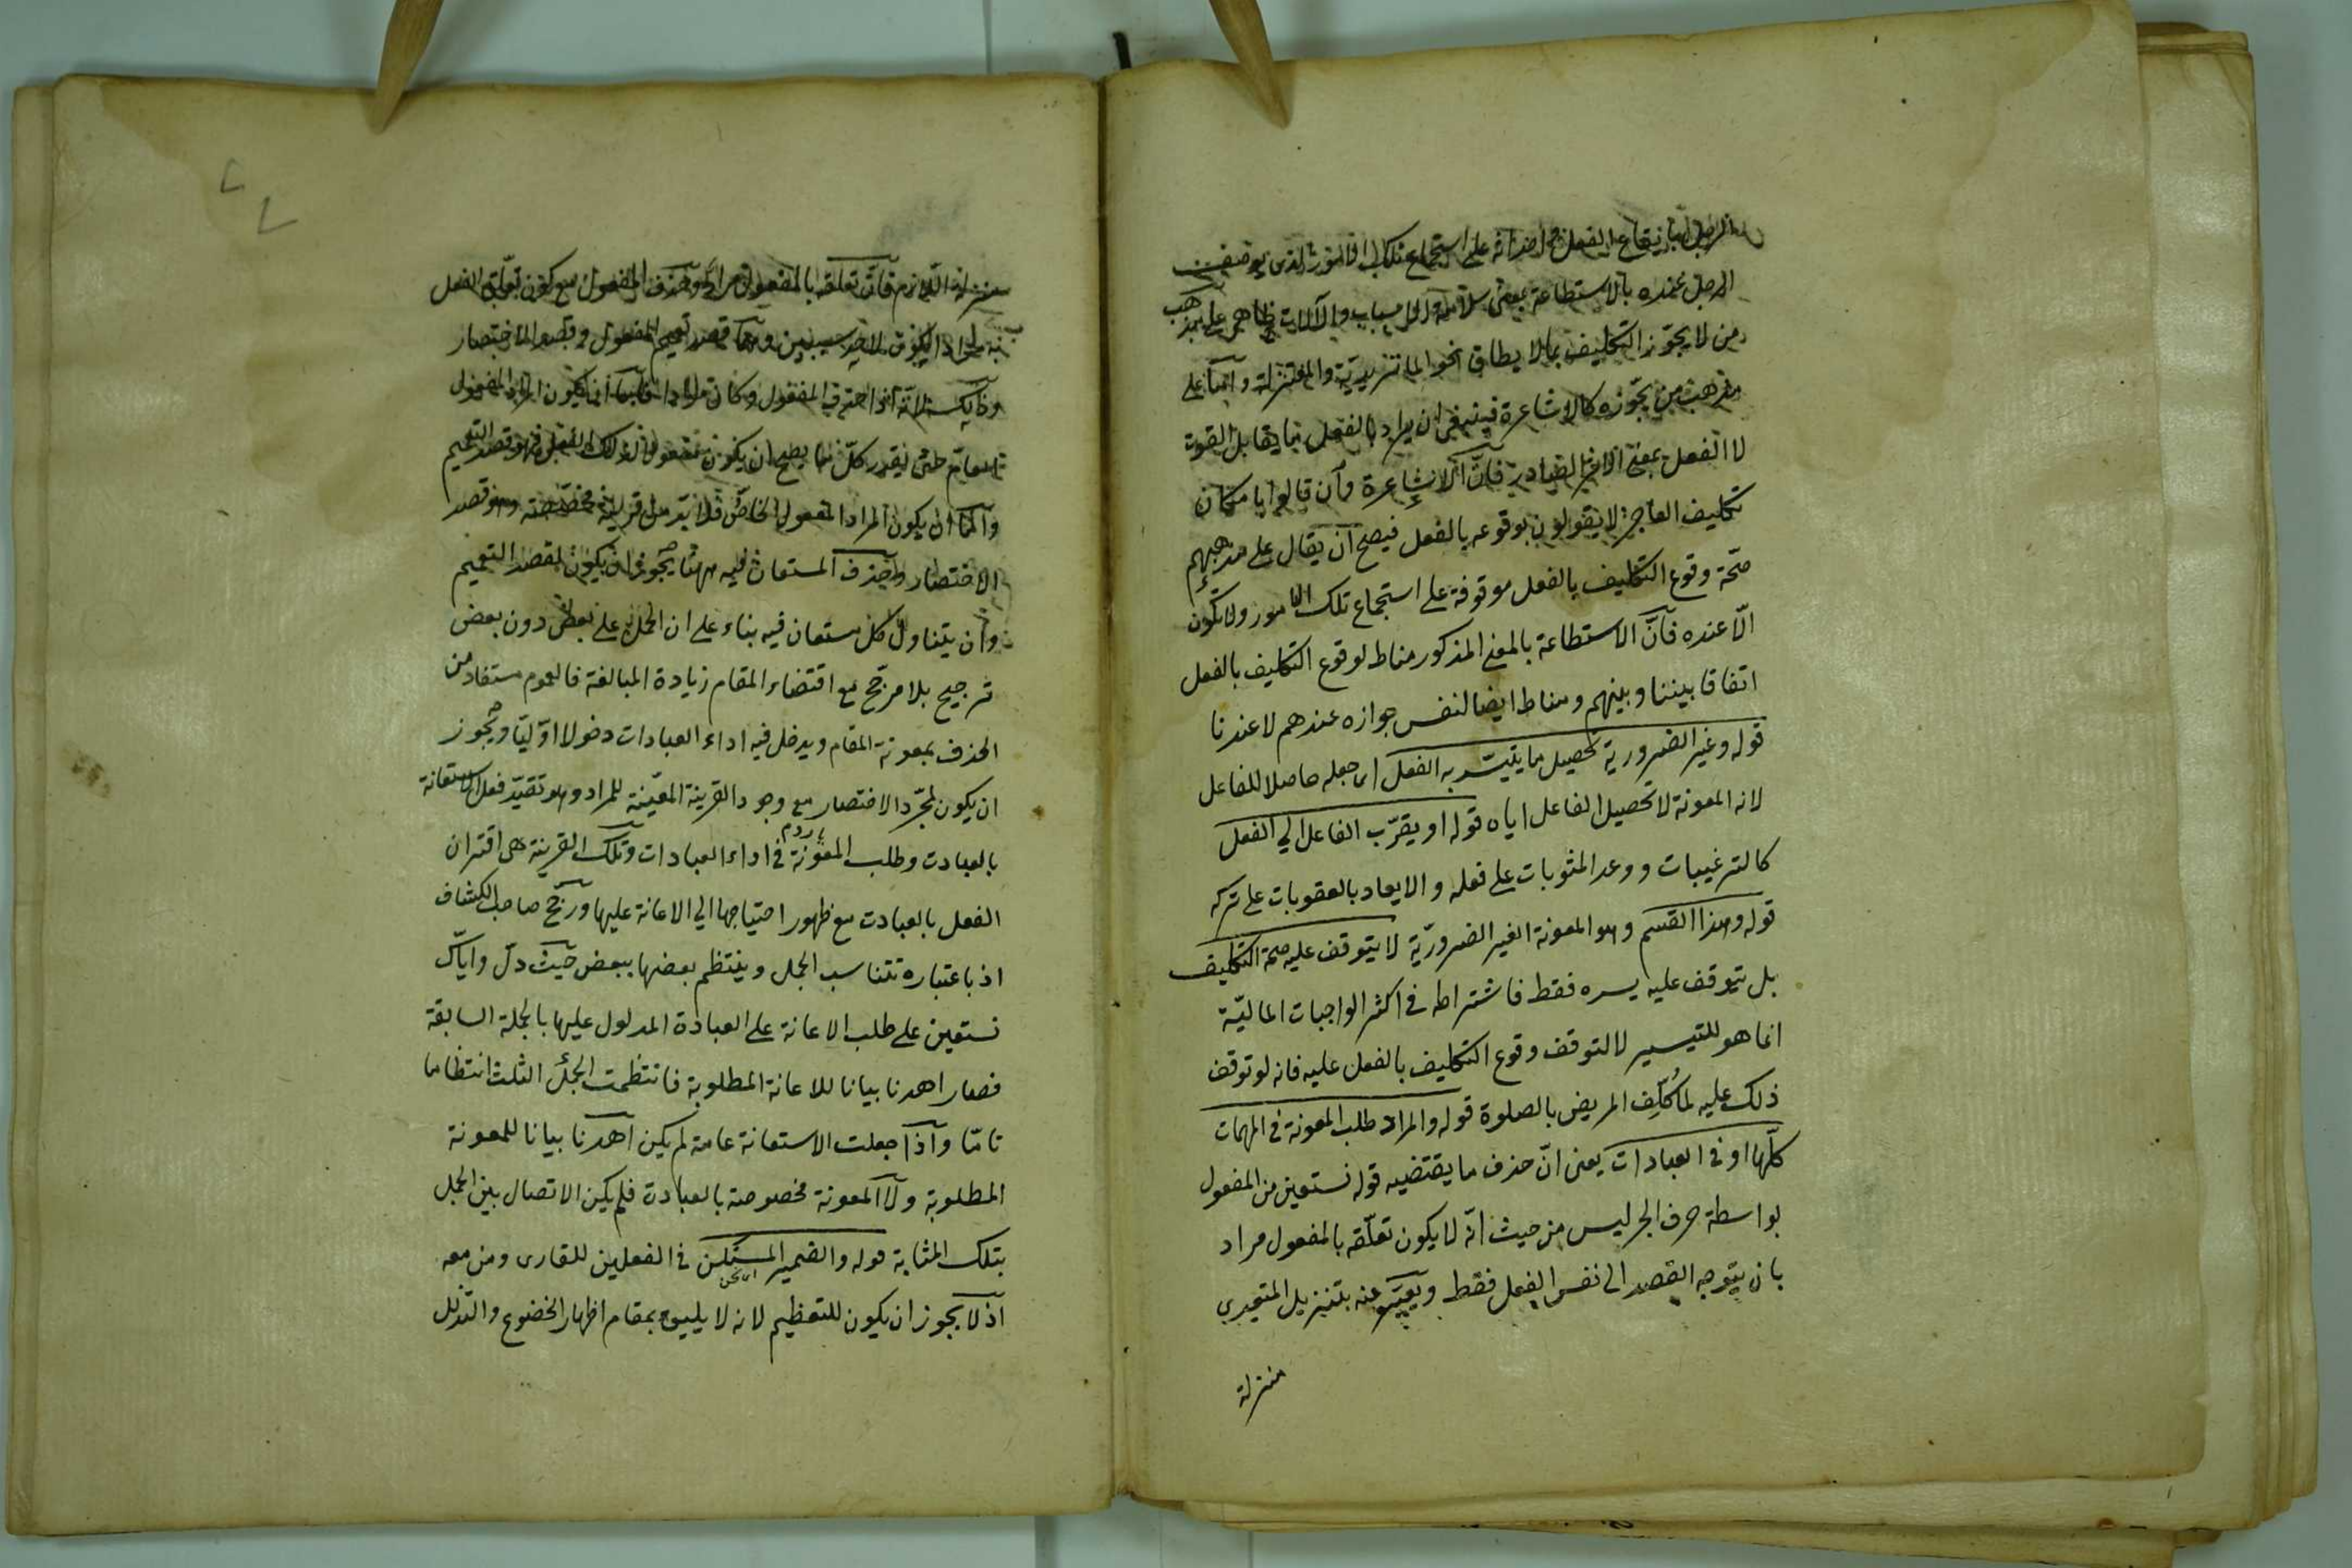 الرجل بايقاع الفعل واحداثه على استجماع تلك الامور الذى يوصف
الرجل عنده بالاستطاعة بمعنى سلامة الاسباب والآلات ظاهر على مذهب
من لا يجوّز التكليف بما لا يطاق نحو الماتريديّة والمعتزلة وامّا على
مذهب من يجوّزه كالاشاعرة فينبغى ان يراد بالفعل ما يقابل القوة
لا الفعل بمعنى الاثر الصادر فانّ الاشاعرة وان قالوا بامكان
تكليف العاجز لا يقولون بوقوعه بالفعل فيصح ان يقال على مذهبهم
صحّة وقوع التكليف بالفعل موقوفة على استجماع تلك الامور ولا تكون
الّا عنده فانّ الاستطاعة بالمعنى المذكور مناط لوقوع التكليف بالفعل
اتفاقا بيننا وبينهم ومناط ايضا لنفس جوازه عندهم لا عندنا
قوله وغير الضرورية تحصيل ما يتيسّر به الفعل اى جعله حاصلا للفاعل
لانه المعونة لا تحصيل الفاعل اياه قوله او يقرّب الفاعل الى الفعل
كالترغيبات ووعد المثوبات على فعله والايعاد بالعقوبات على تركه
قوله وهذا القسم وهو المعونة الغير الضروريّة لا يتوقف عليه صحة التكليف
بل يتوقف عليه يسره فقط فاشتراطه فى اكثر الواجبات الماليّة
انما هو للتيسير لا لتوقف وقوع التكليف بالفعل عليه فانه لو توقف
ذلك عليه لما كُلِّف المريض بالصلوة قوله والمراد طلب المعونة فى المهمات
كلّها او فى العبادات يعنى انّ حذف ما يقتضيه قوله نستعين من المفعول
بواسطة حرف الجر ليس من حيث انّه لا يكون تعلّقه بالمفعول مراد
بان يتوجه القصد الى نفس الفعل فقط ويعبّر عنه بتنزيل المتعدى
منزلة
منزلة اللازم فانّ تعلقه بالمفعول مراد وحذف المفعول مع كون تعلّق الفعل
به مراد ايكون لاحد سببين وهما قصد تعميم المفعول وقصد الاختصار
وذلك لانّه اذا حذف المفعول وكان مرادا فامّا ان يكون المراد المفعول
العام حتى يقدر كلّ ما يصح ان يكون مفعولا لذلك الفعل فهو قصد التعميم
وامّا ان يكون المراد المفعول الخاصّ فلا بدّ من قرينة مخصّصة وهو قصد
الاختصار وحذف المستعان فيه ههنا يجوز ان يكون لقصد التعميم
وان يتناول كل مستعان فيه بناء على ان الحمل على بعض دون بعض
ترجيح بلا مرجّح مع اقتضاء المقام زيادة المبالغة فالعموم مستفاد من
الحذف بمعونة المقام ويدخل فيه اداء العبادات دخولا اوّليّا ويجوز
ان يكون لمجرّد الاختصار مع وجود القرينة المعيّنة للمراد وهو تقيّد فعل الاستعانة
بالعبادت وطلب المعونة فى اداء العبادات وتلك القرينة هى اقتران
الفعل بالعبادت مع ظهور احتياجها الى الاعانة عليها ورجّح صاحب الكشاف
اذ باعتباره تتناسب الجمل وينتظم بعضها ببعض حيث دلّ واياك
نستعين على طلب الاعانة على العبادة المدلول عليها بالجملة السابقة
فصار اهدنا بيانا للاعانة المطلوبة فانتظمت الجمل الثلث انتظاما
تامّا واذا جعلت الاستعانة عامة لم يكن اهدنا بيانا للمعونة
المطلوبة ولا المعونة مخصوصة بالعبادت فلم يكن الاتصال بين الجمل
بتلك المثابة قوله والضمير المستكن فى الفعلين للقارى ومن معه
اى نحن
اذ لا يجوز ان يكون للتعظيم لانه لا يليق بمقام اظهار الخضوع والتذلل